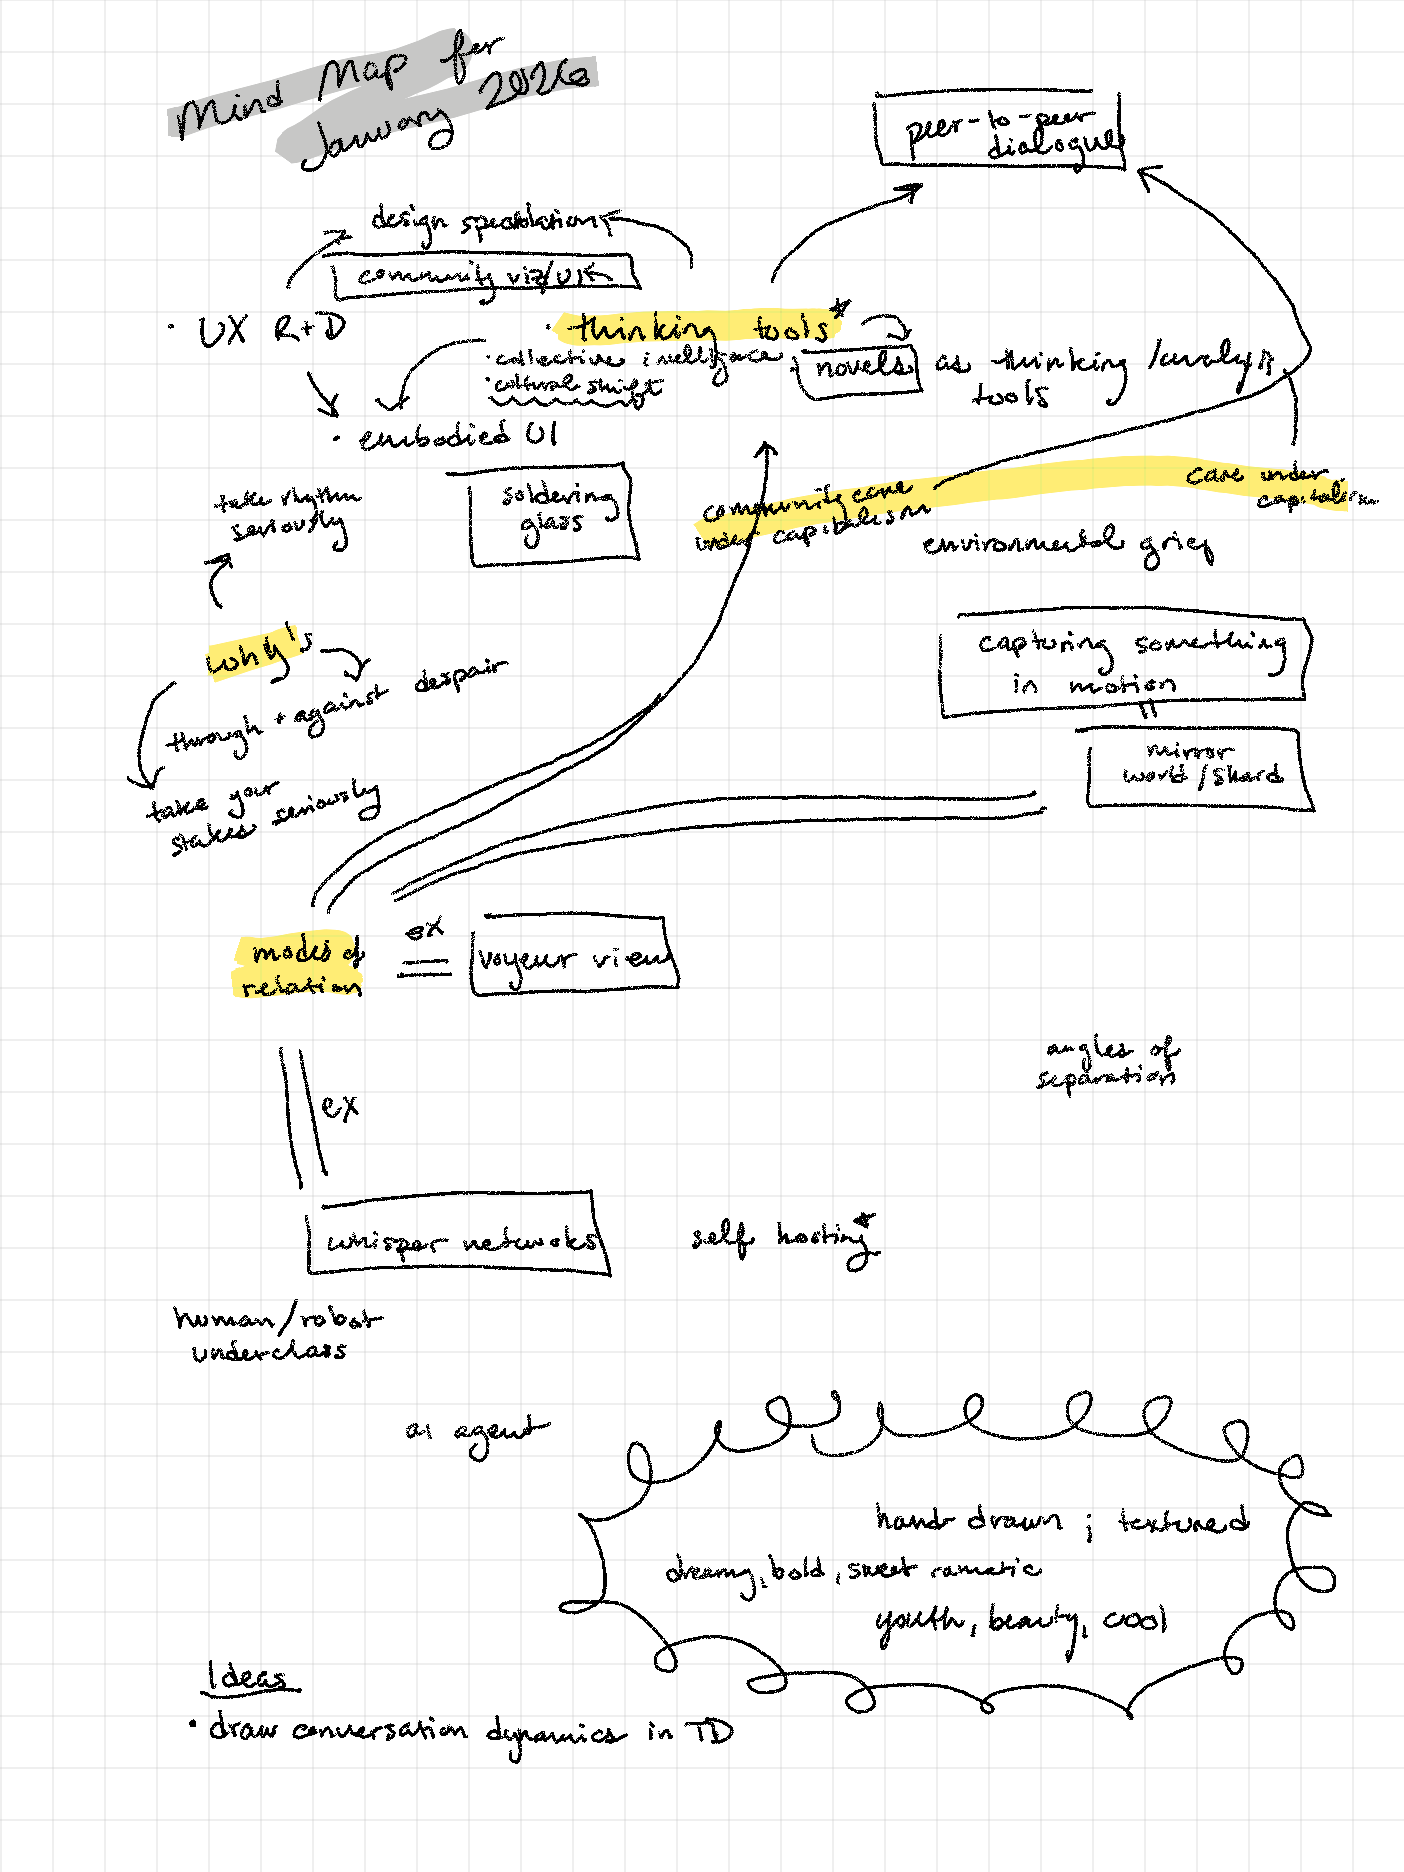 Mind Map for
January 2026
peer-to-peer
dialogue
design speculation
community viz/UI
• UX R+D
• thinking tools*
• collective intelligence
• cultural shift
novels as thinking / analysis
tools
• embodied UI
take rhythm
seriously
soldering
glass
community care
under capitalism
care under
capitalism
environmental grief
why's
through + against despair
take your
stakes seriously
capturing something
in motion
mirror
world/shard
modes of
relation
ex
voyeur view
angles of
separation
ex
whisper networks
self hosting*
human/robot
underclass
ai agent
hand drawn ; textured
dreamy, bold, sweet romatic
youth, beauty, cool
Ideas
• draw conversation dynamics in TD